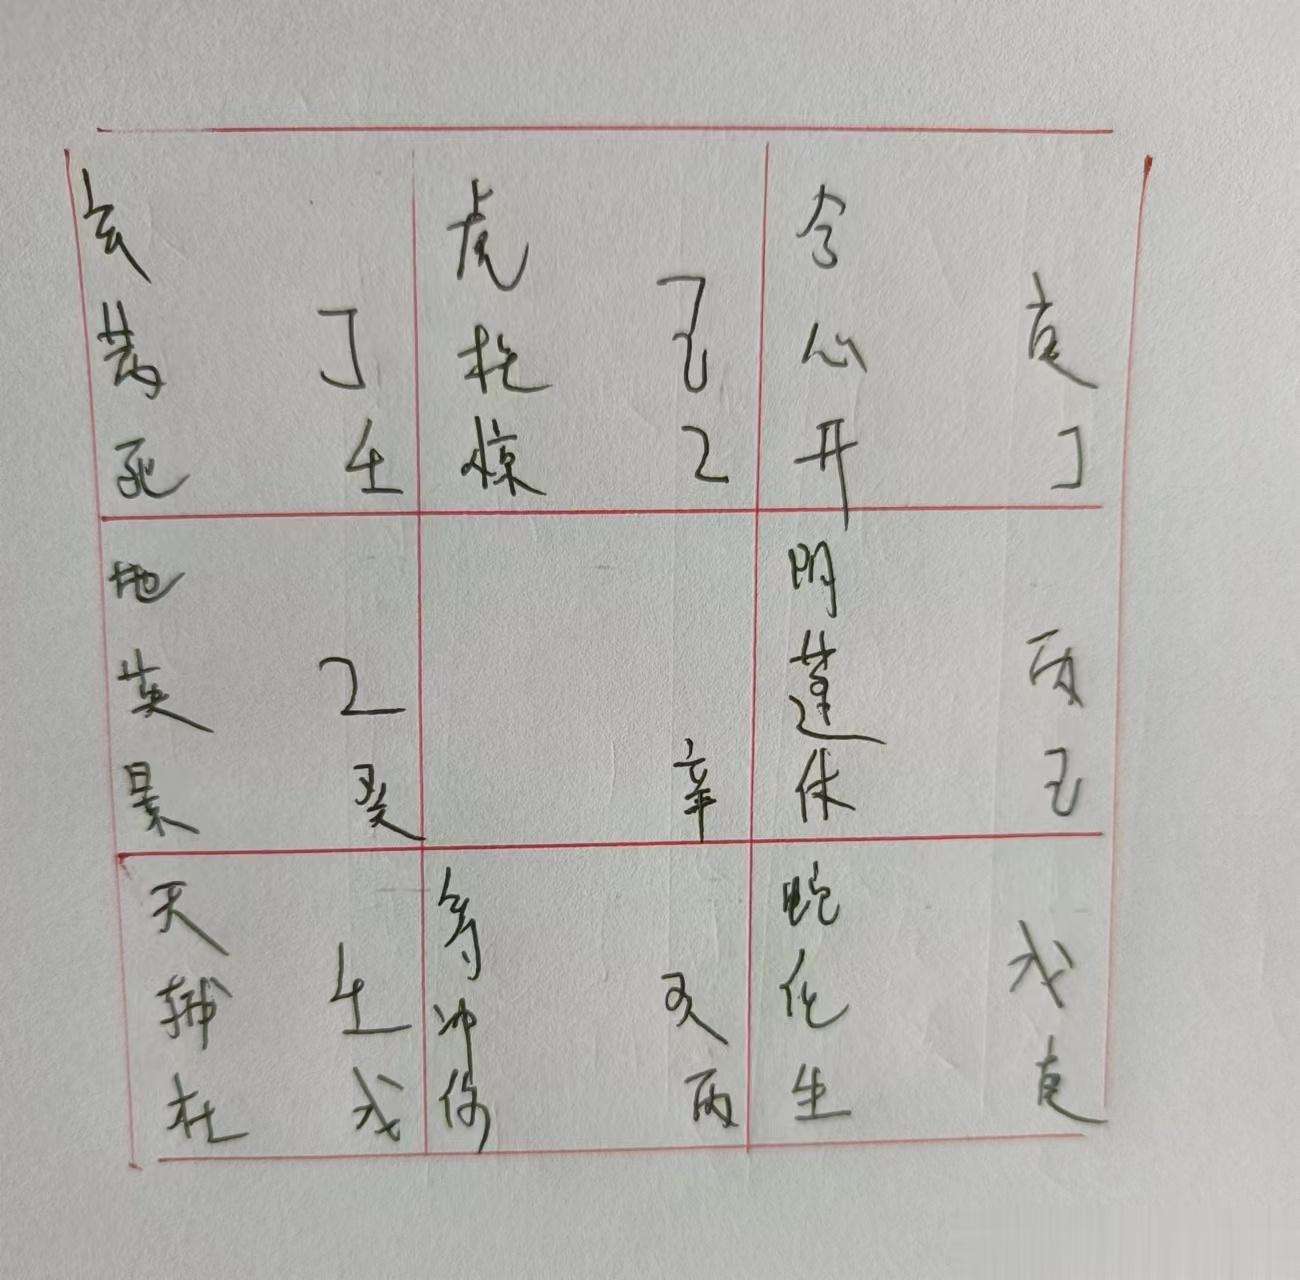 玄
芮 丁
死 壬
虎
柱 己
惊 乙
合
心 庚
开 丁
地
英 乙
景 癸
辛
阴
蓬 丙
休 己
天
辅 壬
杜 戊
符
冲 癸
伤 丙
蛇
任 戊
生 庚